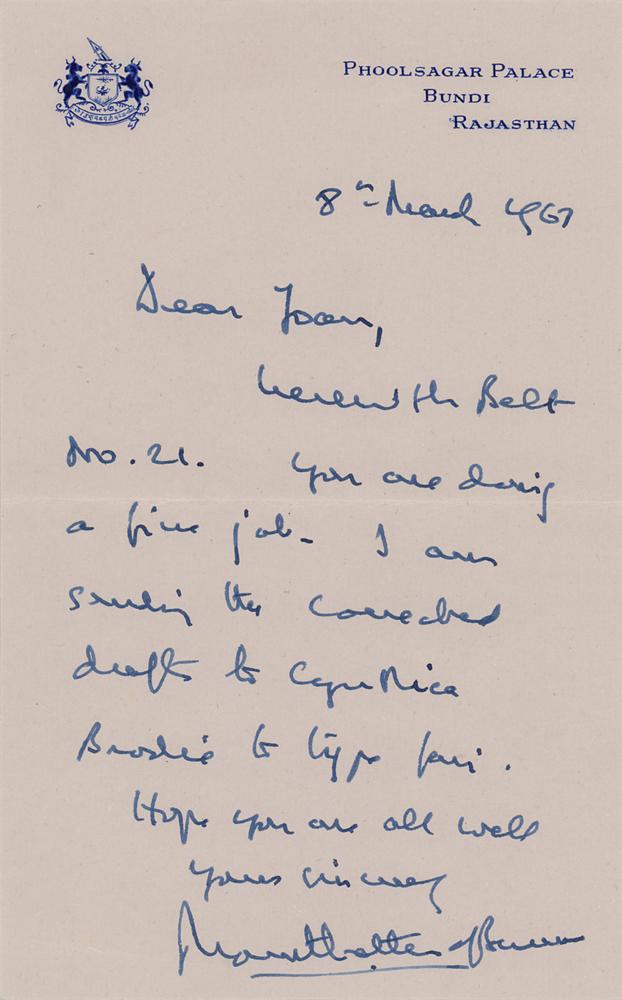 PHOOLSAGAR PALACE
BUNDI
RAJASTHAN
8th March 1967
Dear Joan,
herewith Belt
No. 21. You are doing
a fine job. I am
sending the corrected
drafts to Cynthia
Brodie to type fair.
Hope you are all well
Yours sincerely
Mountbatten of Burma